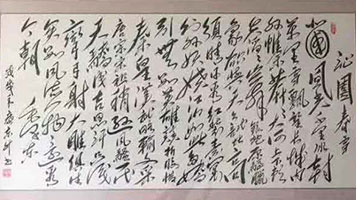 沁园春雪
北國風光千里冰封
萬里雪飄望長城內
外惟余莽莽大河上下頓
失滔滔山舞銀蛇原馳蠟
象欲與天公試比高
須晴日看紅裝素裹
分外妖嬈江山如此多嬌
引無數英雄競折腰惜
秦皇漢武略輸文采
唐宗宋祖稍遜風騷一代
天驕成吉思汗只識
彎弓射大雕俱往
矣數風流人物還看
今朝 毛澤東